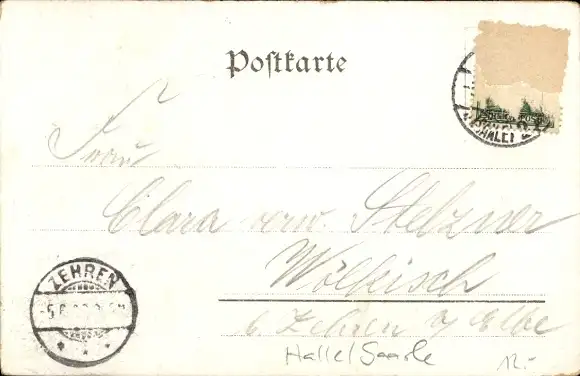 Postkarte
Frau
Clara verw. Stelzner
Wölkisch
b. Zehren a/ Elbe
ZEHREN
Halle/Saale
12.-